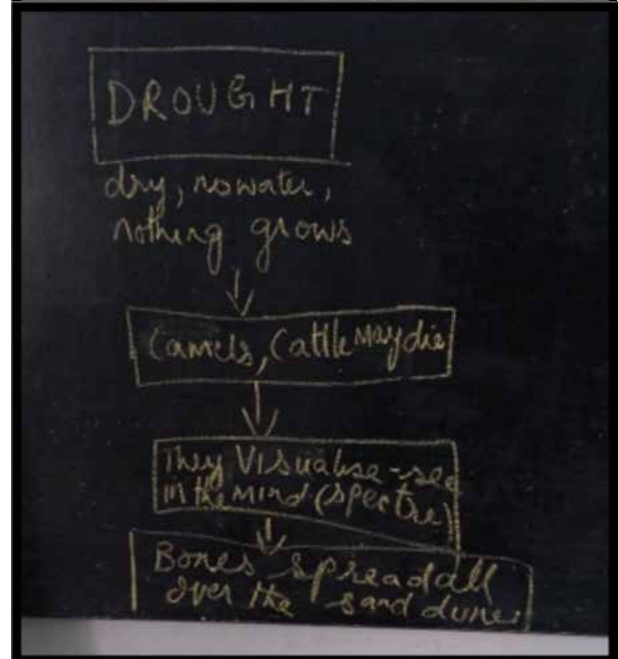 DROUGHT
dry, no water,
nothing grows
Camels, Cattle May die
They Visualise - see
in the Mind (spectre)
Bones spread all
over the sand dunes